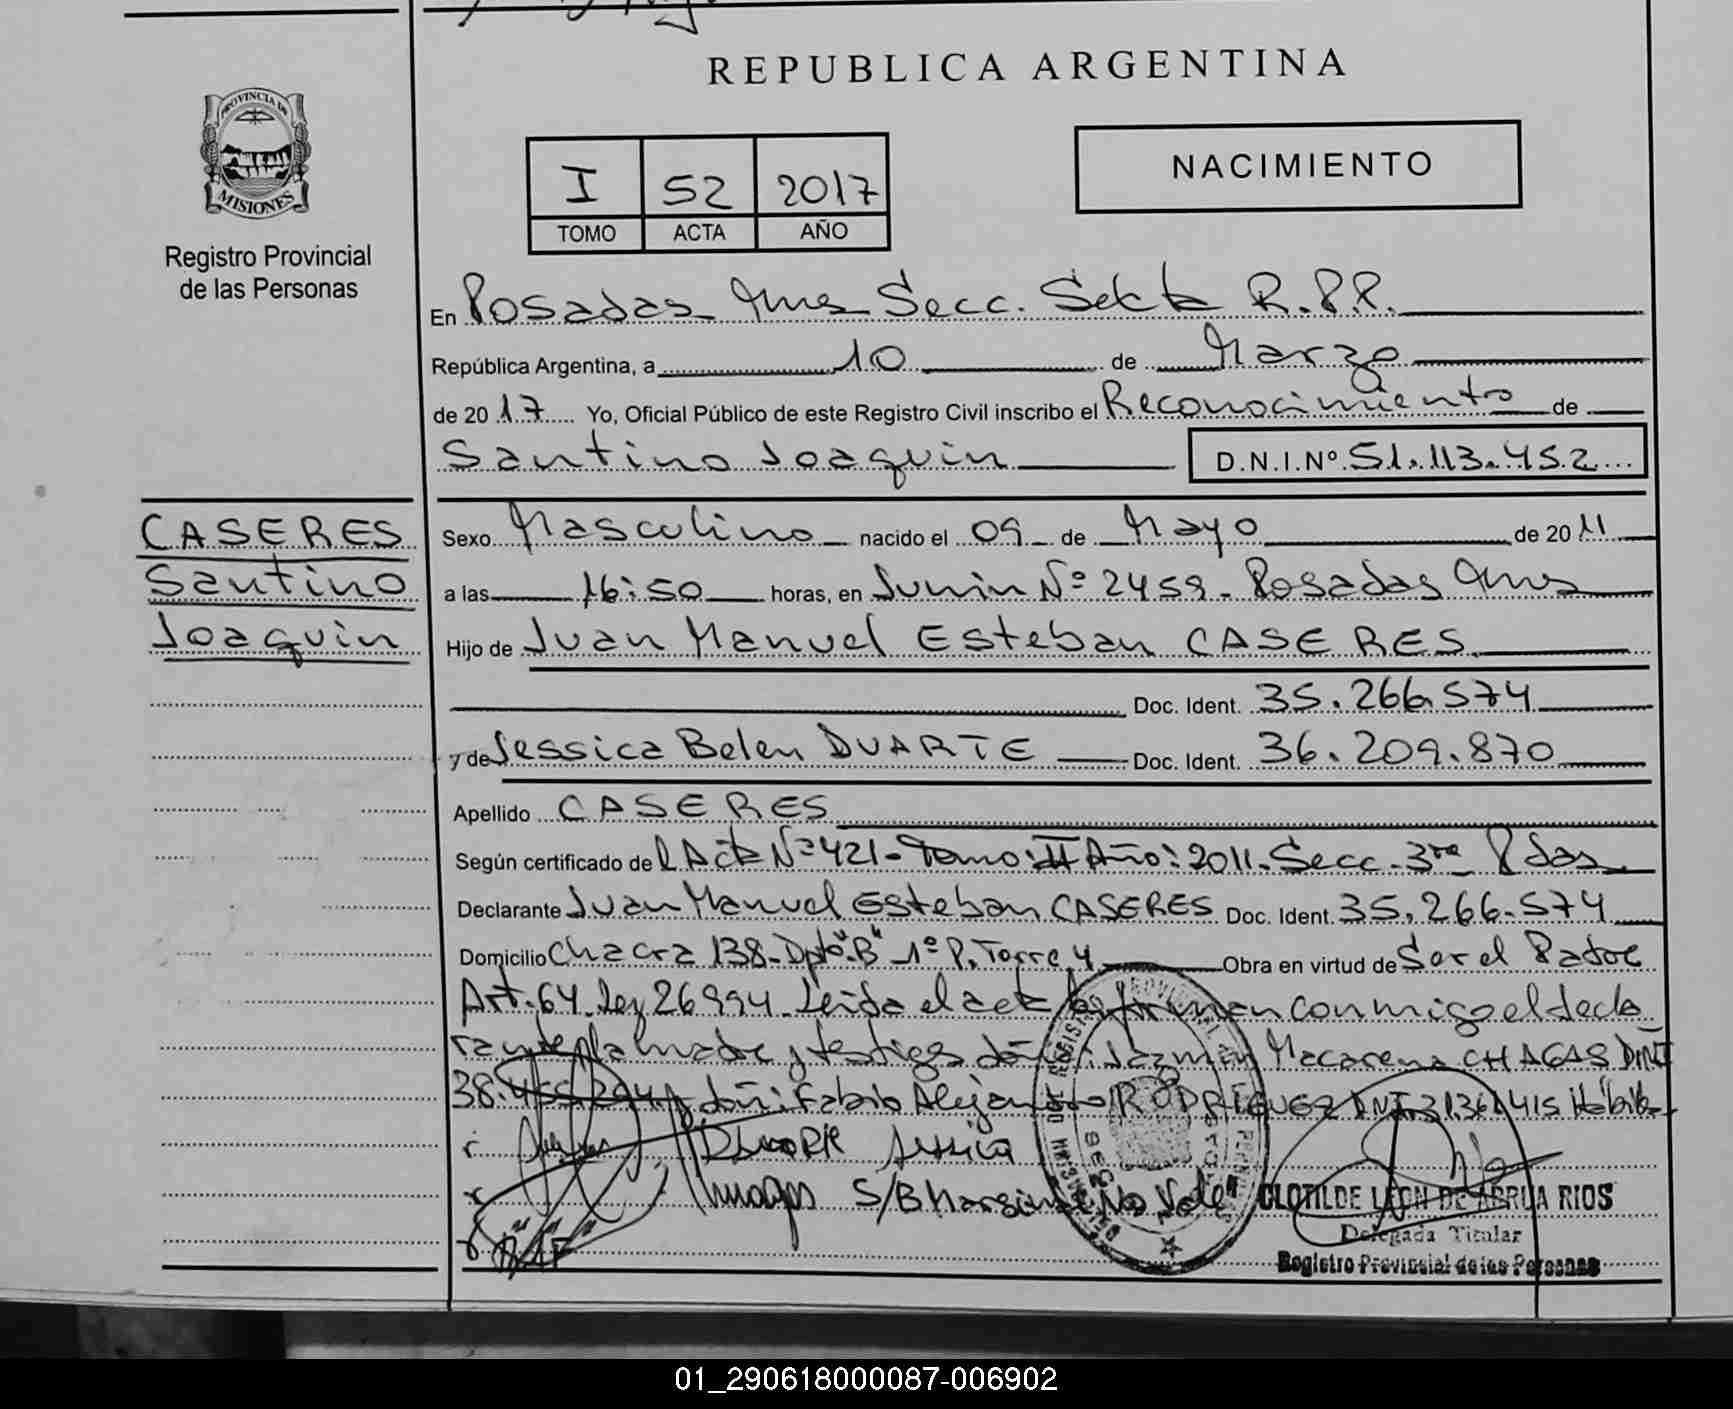 REPUBLICA ARGENTINA
PROVINCIA DE
MISIONES
Registro Provincial
de las Personas
NACIMIENTO
I 52 2017
TOMO ACTA AÑO
En Posadas Mnes Secc. Sexta R.P.P.
República Argentina, a 10 de Marzo
de 2017 Yo, Oficial Público de este Registro Civil inscribo el Reconocimiento de
Santino Joaquin D.N.I.Nº 51.113.452
CASERES
Santino
Joaquin
Sexo Masculino nacido el 09 de Mayo de 2011
a las 16:50 horas, en Junin Nº 2459 - Posadas Mnes
Hijo de Juan Manuel Esteban CASERES
Doc. Ident. 35.266.574
y de Jessica Belen DUARTE Doc. Ident. 36.209.870
Apellido CASERES
Según certificado de Acta Nº 421 - Tomo: II Año: 2011 - Secc. 3ra Pdas
Declarante Juan Manuel Esteban CASERES Doc. Ident. 35.266.574
Domicilio Chacra 138 - Dpto "B" 1º P. Torre 4 Obra en virtud de Ser el Padre
Art. 64 Ley 26994 Leida el acta la firman conmigo el decla
rante, la madre y testigos doñ: Jazmin Macarena CHAGAS DNI
38. y doñ: Fabio Alejandro RODRIGUEZ DNI
DUARTE Jessica
S/B Marginal No Vale
CLOTILDE LEON DE ABRUA RIOS
Delegada Titular
Registro Provincial de las Personas
01_290618000087-006902